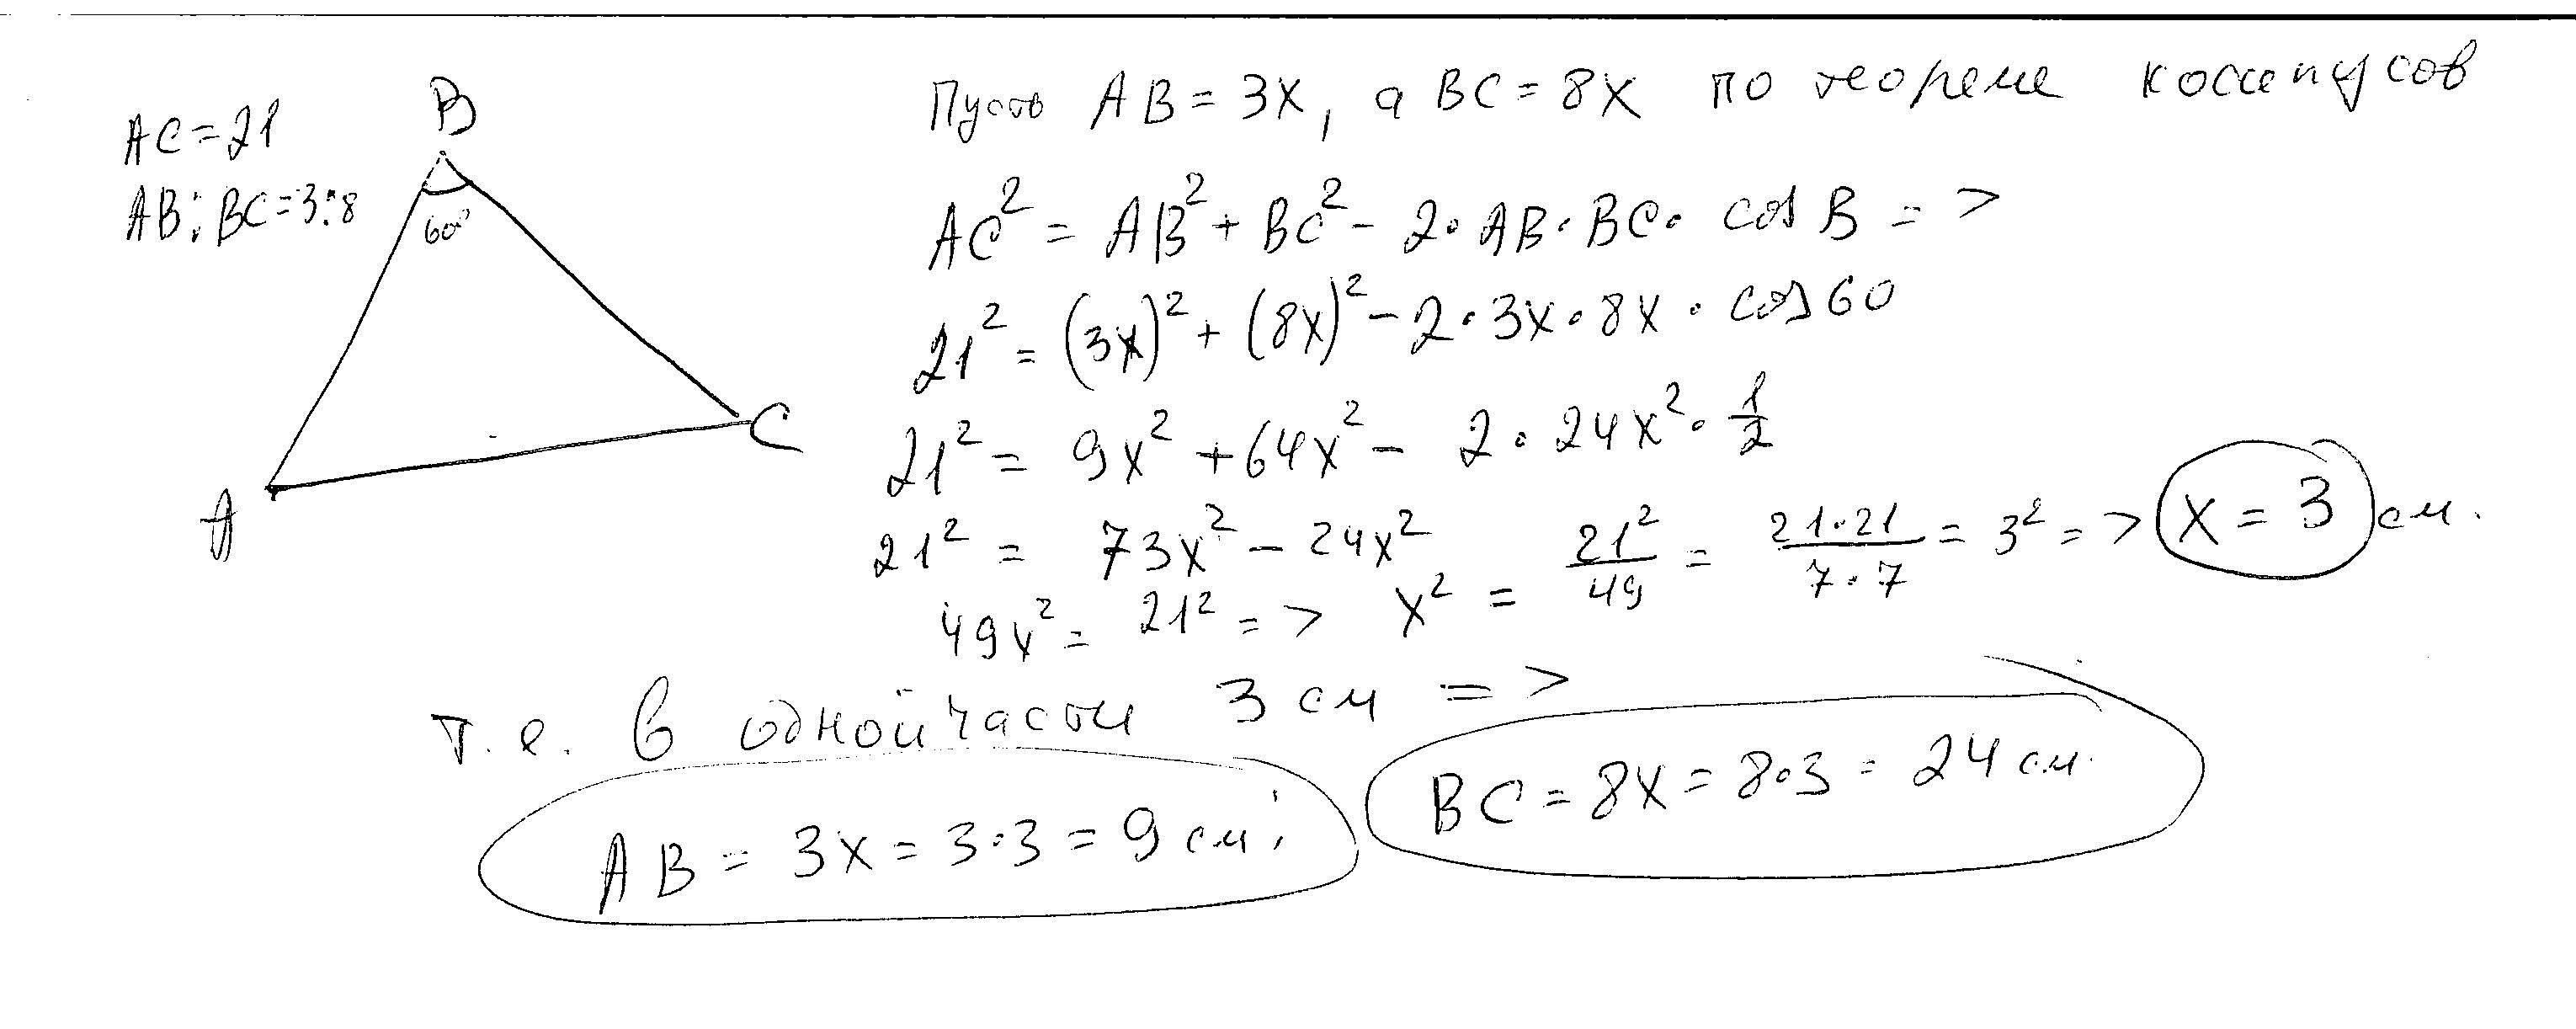 AC = 21
AB : BC = 3 : 8
B
60°
A
C
Пусть AB = 3x, а BC = 8x по теореме косинусов
AC² = AB² + BC² - 2 · AB · BC · cos B =>
21² = (3x)² + (8x)² - 2 · 3x · 8x · cos 60
21² = 9x² + 64x² - 2 · 24x² · 1/2
21² = 73x² - 24x²
49x² = 21² => x² = 21²/49 = 21·21/7·7 = 3² => x = 3 см.
т.е. в одной части 3 см =>
AB = 3x = 3·3 = 9 см;
BC = 8x = 8·3 = 24 см.